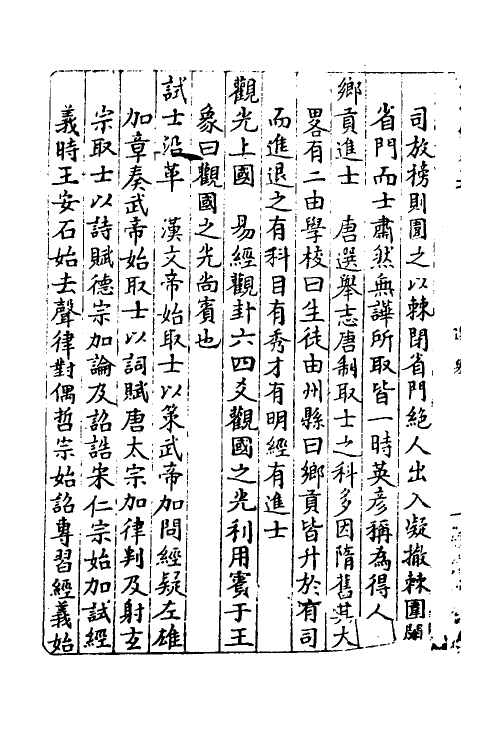 司放榜則圍之以棘閉省門絶人出入凝撤棘圍闢
省門而士肅然無譁所取皆一時英彦稱為得人
鄉貢進士　唐選舉志唐制取士之科多因隋舊其大
畧有二由學校曰生徒由州縣曰鄉貢皆升於有司
而進退之有科目有秀才有明經有進士
觀光上國　易經觀卦六四爻觀國之光利用賓于王
象曰觀國之光尚賓也
試士沿革　漢文帝始取士以策武帝加問經疑左雄
加章奏武帝始取士以詞賦唐太宗加律判及射玄
宗取士以詩賦德宗加論及詔誥宋仁宗始加試經
義時王安石始去聲律對偶哲宗始詔專習經義始